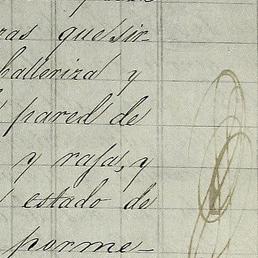 ras que sir-
balleriza y
pared de
y rafa, y
estado de
porme-